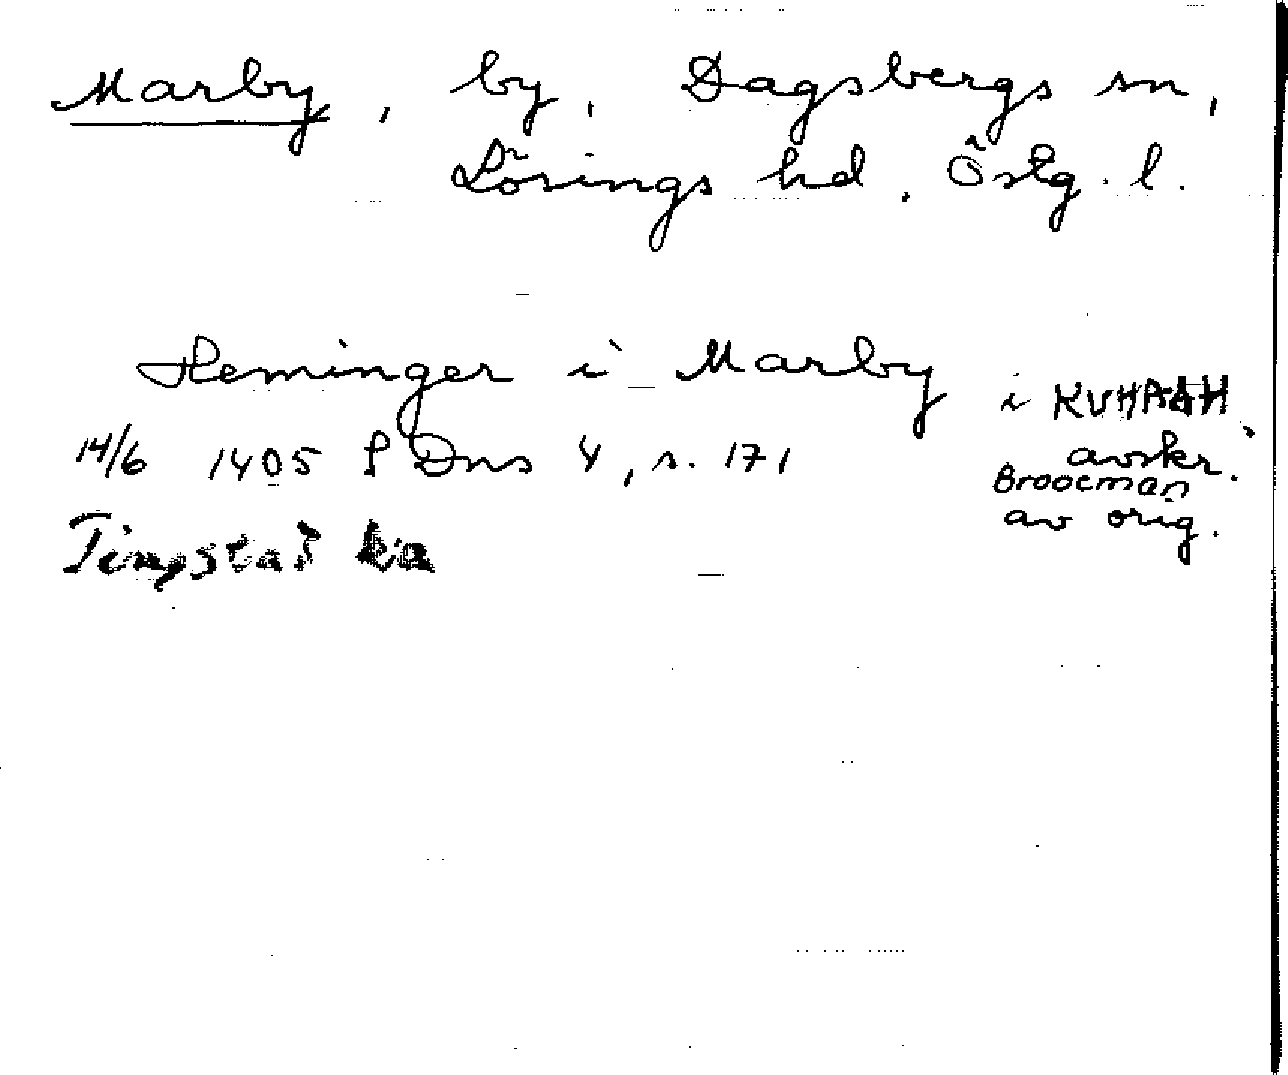 Marby, by, Dagsbergs sn,
Lösings hd. Östg. l.
Heminger i Marby
14/6 1405 P Dns 4, s. 171
i KVHAAH
avskr.
Broocman
av orig.
Tingstad ka